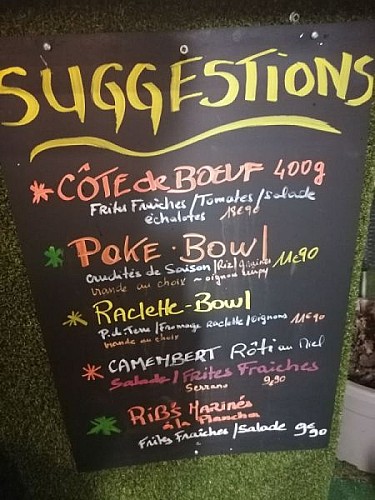 SUGGESTIONS
CÔTE de BOEUF 400g
Frites Fraîches/Tomates/salade
échalotes 18€90
POKE.BOWL 11€90
Crudités de Saison/Riz/
viande au choix ~ oignon
RACLETTE-BOWL
P.de Terre/Fromage Raclette/Oignons 11€90
viande au choix
CAMEMBERT Rôti au Miel
Salade/Frites Fraîches
Serrano 9€90
RIBS MARINÉS
à la Plancha
Frites Fraîches/Salade 9€90